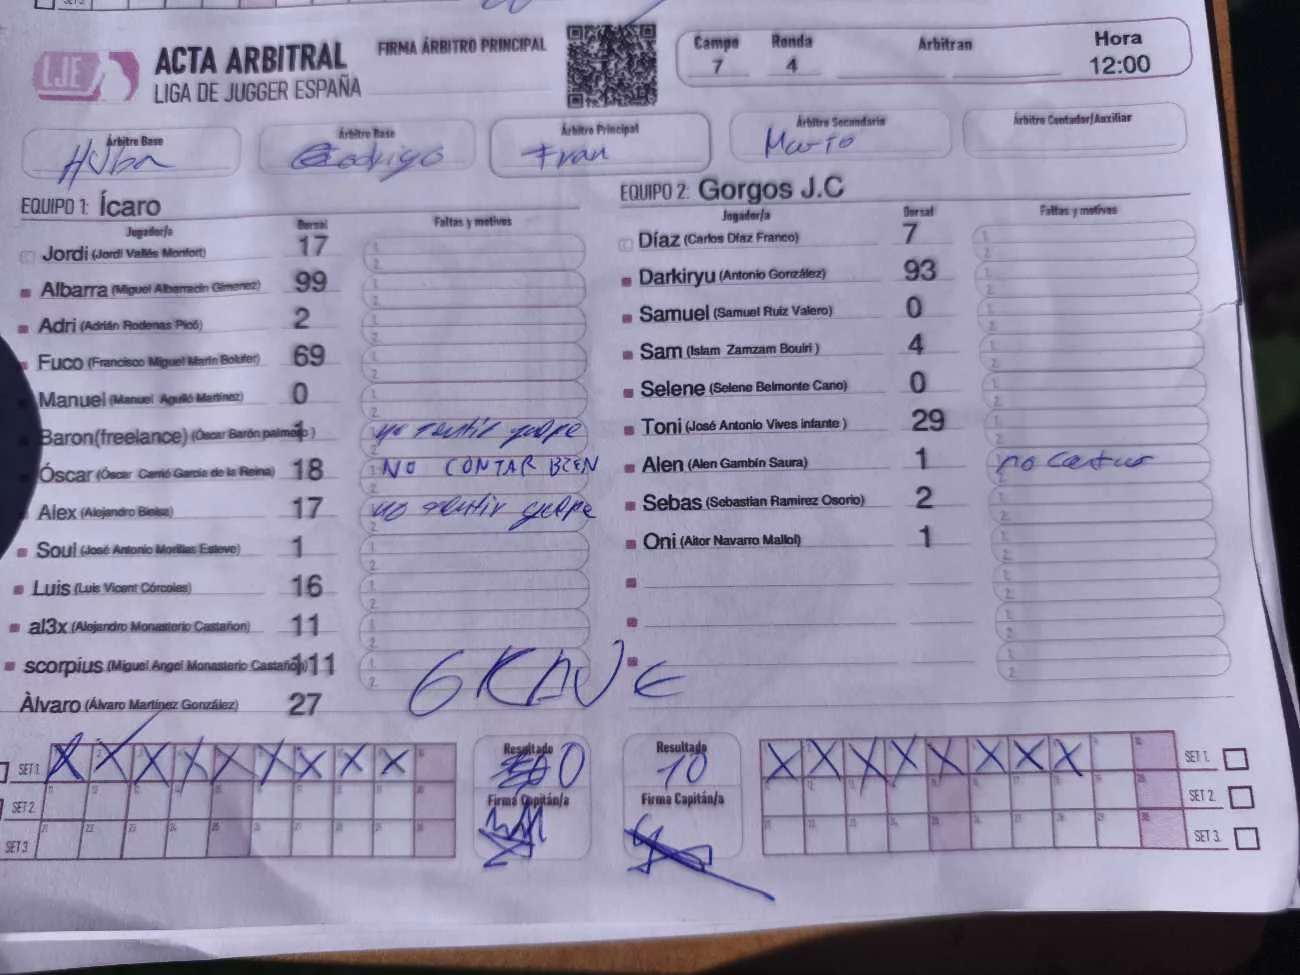 LJE
ACTA ARBITRAL
LIGA DE JUGGER ESPAÑA
FIRMA ÁRBITRO PRINCIPAL
Campo Ronda Arbitran Hora
7 4 12:00
Árbitro Base Árbitro Base Árbitro Principal Árbitro Secundario Árbitro Contador/Auxiliar
Rodrigo Fran Mario
EQUIPO 1: Ícaro
Jugador/a Dorsal Faltas y motivos
Jordi (Jordi Vallés Monfort) 17
Albarra (Miguel Albarracin Gimenez) 99
Adri (Adrián Rodenas Picó) 2
Fuco (Francisco Miguel Marin Bolufer) 69
Manuel (Manuel Agulló Martínez) 0
Baron(freelance) (Óscar Barón palmero) 1 no sentir golpe
Óscar (Óscar Carrió García de la Reina) 18 NO CONTAR BIEN
Alex (Alejandro Bleisa) 17 no sentir golpe
Soul (José Antonio Morillas Esteve) 1
Luis (Luis Vicent Córcoles) 16
al3x (Alejandro Monasterio Castañon) 11
scorpius (Miguel Angel Monasterio Castañon) 111
Àlvaro (Álvaro Martínez González) 27
GRAVE
EQUIPO 2: Gorgos J.C
Jugador/a Dorsal Faltas y motivos
Díaz (Carlos Díaz Franco) 7
Darkiryu (Antonio González) 93
Samuel (Samuel Ruiz Valero) 0
Sam (Islam Zamzam Bouiri ) 4
Selene (Selene Belmonte Cano) 0
Toni (José Antonio Vives infante ) 29
Alen (Alen Gambín Saura) 1
Sebas (Sebastian Ramirez Osorio) 2
Oni (Aitor Navarro Mallol) 1
SET 1.
SET 2.
SET 3
Resultado
0
Firma Capitán/a
Resultado
10
Firma Capitán/a
SET 1.
SET 2.
SET 3.